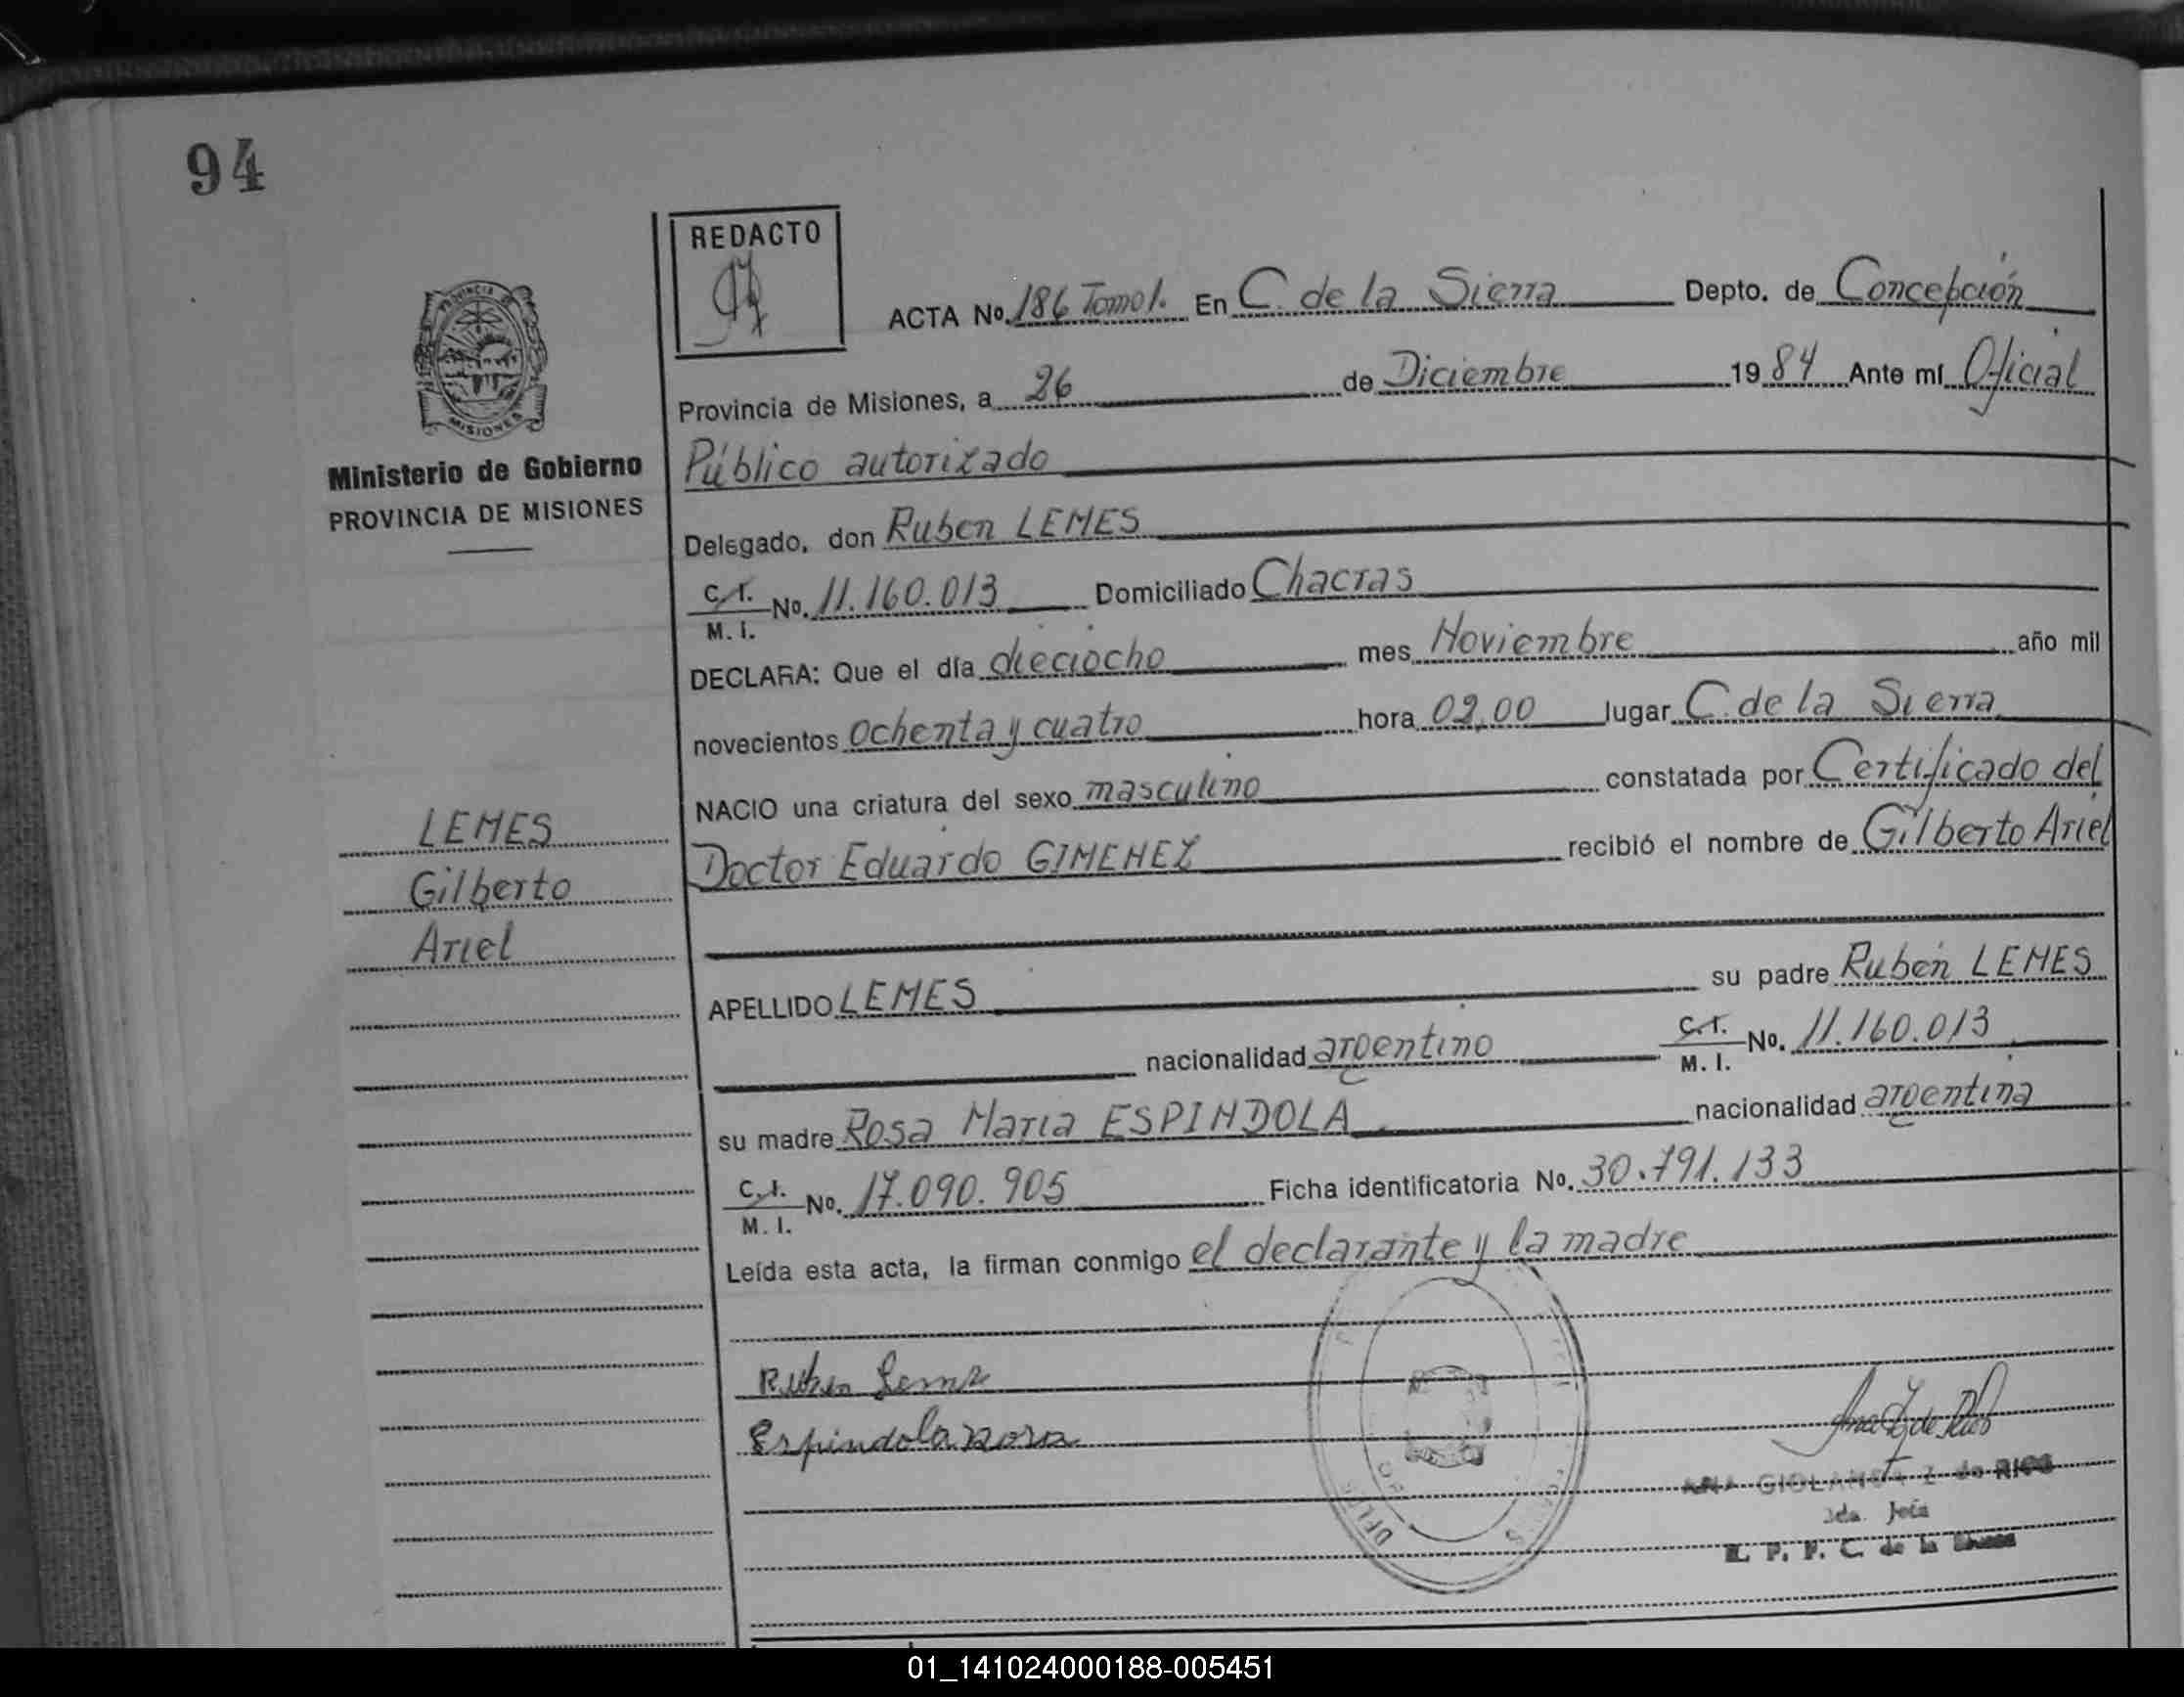 94
REDACTO
ACTA No. 186 Tomo 1. En C. de la Sierra Depto. de Concepción
Provincia de Misiones, a 26 de Diciembre 1984 Ante mí Oficial
Público autorizado
PROVINCIA DE MISIONES
Ministerio de Gobierno
PROVINCIA DE MISIONES
Delegado, don Ruben LEMES
C. I. M. I. No. 11.160.013 Domiciliado Chacras
DECLARA: Que el día dieciocho mes Noviembre año mil
novecientos ochenta y cuatro hora 02,00 lugar C. de la Sierra
NACIO una criatura del sexo masculino constatada por Certificado del
Doctor Eduardo GIMENEZ recibió el nombre de Gilberto Ariel
LEMES
Gilberto
Ariel
APELLIDO LEMES su padre Rubén LEMES
nacionalidad argentino C. I. M. I. No. 11.160.013
su madre Rosa Maria ESPINDOLA nacionalidad argentina
C. I. M. I. No. 17.090.905 Ficha identificatoria No. 30.791.133
Leída esta acta, la firman conmigo el declarante y la madre
Ruben Lemes
Espindola Rosa
de RICO
R. P. P. C. de la Sierra
01_141024000188-005451